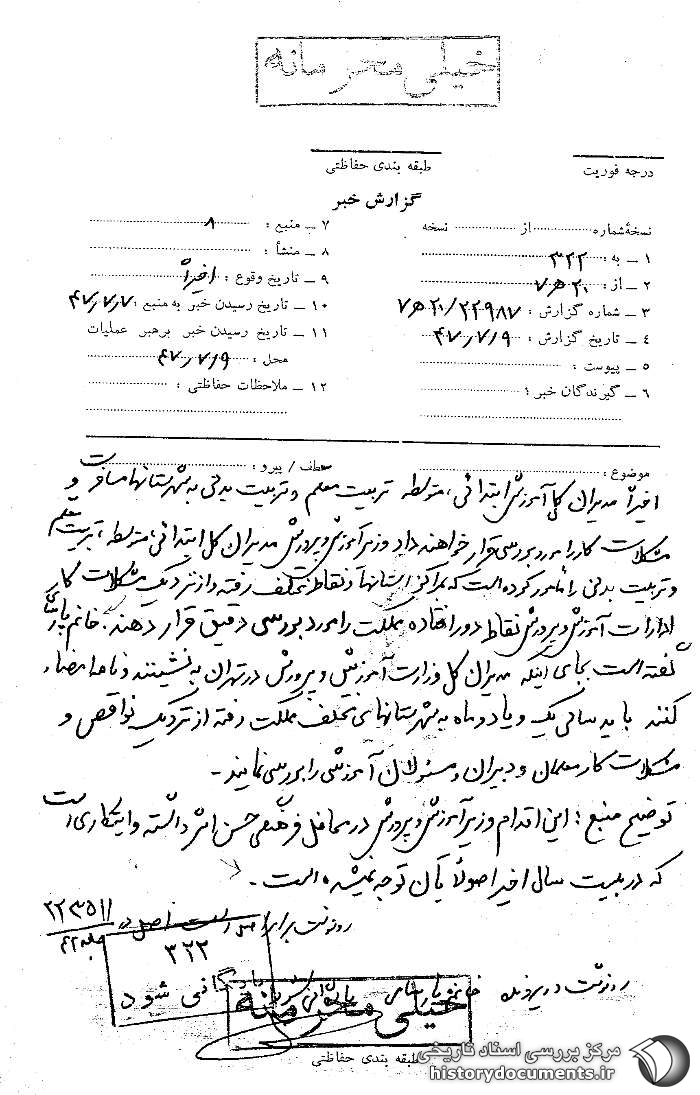 خیلی محرمانه
درجه فوریت
طبقه بندی حفاظتی
گزارش خبر
نسخهٔ شماره ............ از ............ نسخه
۱ ــ به : ۳۲۲
۲ ــ از : ۲۰ ه ۷
۳ ــ شماره گزارش : ۲۲۹۸۷/۲۰ ه ۷
۴ ــ تاریخ گزارش : ۴۷/۷/۹
۵ ــ پیوست :
۶ ــ گیرندگان خبر :
۷ ــ منبع : ۸
۸ ــ منشأ :
۹ ــ تاریخ وقوع : اخیراً
۱۰ ــ تاریخ رسیدن خبر به منبع : ۴۷/۷/۷
۱۱ ــ تاریخ رسیدن خبر برهبر عملیات
محل : ۴۷/۷/۹
۱۲ ــ ملاحظات حفاظتی :
موضوع :
عطف / پیرو :
اخیراً مدیران کل آموزش ابتدائی، متوسطه تربیت معلم و تربیت بدنی به شهرستانها مسافرت و
مشکلات کار را مورد بررسی قرار خواهند داد وزیر آموزش و پرورش مدیران کل ابتدائی، متوسطه، تربیت معلم
و تربیت بدنی را مامور کرده است که بمراکز استانها و نقاط مختلف رفته و از نزدیک مشکلات کار
ادارات آموزش و پرورش نقاط دور افتاده مملکت را مورد بررسی دقیق قرار دهند. خانم پارسای
گفته است بجای اینکه مدیران کل وزارت آموزش و پرورش در تهران به نشینند و نامه امضاء
کنند باید سالی یک و یا دو ماه به شهرستانهای مختلف مملکت رفته از نزدیک نواقص و
مشکلات کار معلمان و دبیران و مسئولان آموزشی را بررسی نمایند .-
توضیح منبع : این اقدام وزیر آموزش و پرورش در محافل فرهنگی حسن اثر داشته و ابتکاری است
که در بیست سال اخیر اصولاً بآن توجه نمیشده است .-
رونوشت برابر اصل است اصل در ۲۲۳۵۱۱
جلد ۴۲
۳۲۲
رونوشت در پرونده خانم پارسای بایگانی شود
بایگانی شود
خیلی محرمانه
طبقه بندی حفاظتی
مرکز بررسی اسناد تاریخی
historydocuments.ir